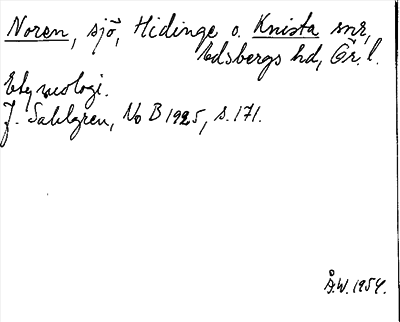 Noren, sjö, Hidinge o. Knista snr,
Edsbergs hd, Ör. l.
Etymologi.
J. Sahlgren, No B 1925, s. 171.
Å.W. 1954.